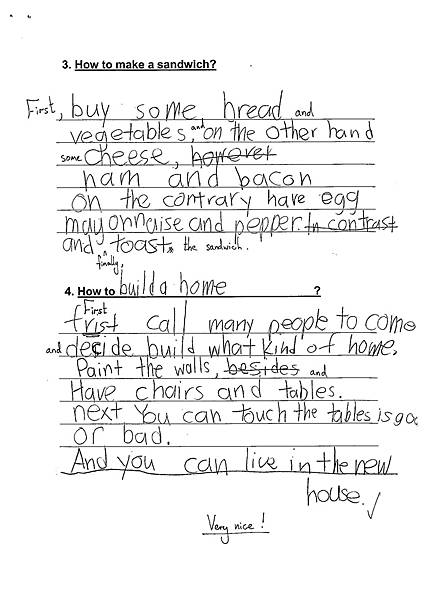 3. How to make a sandwich?
First, buy some bread and
vegetables, and on the other hand
some cheese, however
ham and bacon
on the contrary have egg
mayonnaise and pepper. In contrast
and toast the sandwich.
finally,
4. How to build a home ?
First
frist call many people to come
and decide build what kind of home.
Paint the walls, besides and
Have chairs and tables.
next You can touch the tables is go
or bad.
And you can live in the new
house.
Very nice!